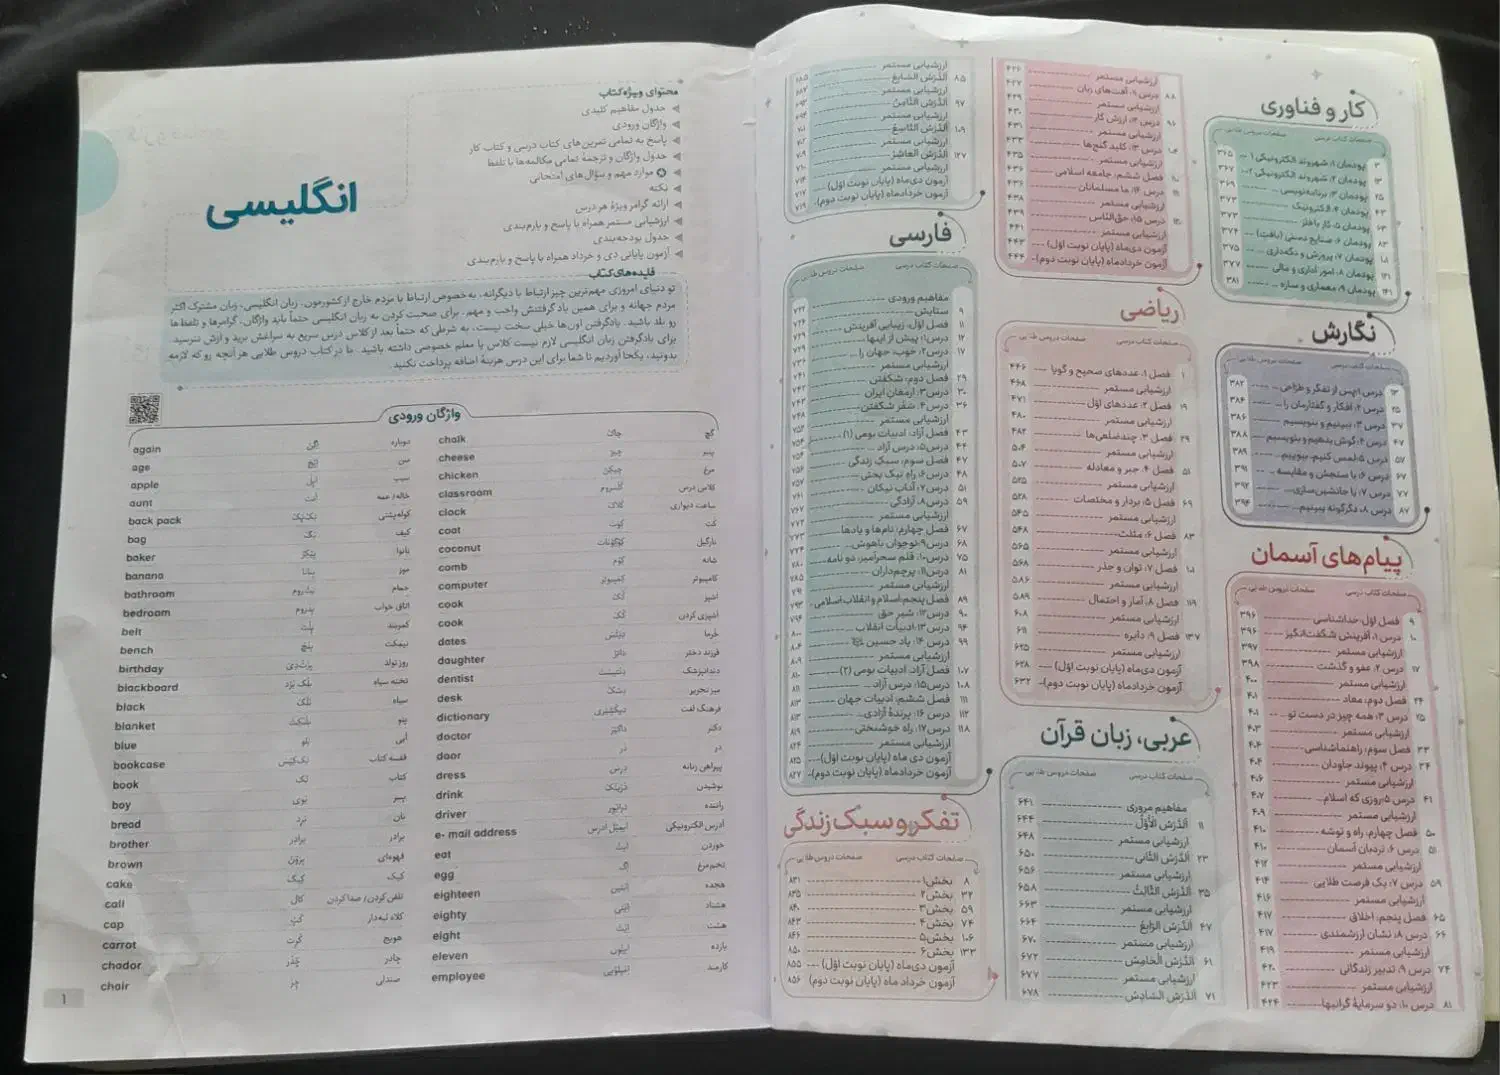 کار و فناوری
صفحات کتاب درسی صفحات دروس طلایی
۳ پودمان ۱: شهروند الکترونیکی ۱ ۳۶۵
۱۳ پودمان ۲: شهروند الکترونیکی ۲ ۳۶۷
۲۵ پودمان ۳: برنامه‌نویسی ۳۶۹
۴۳ پودمان ۴: الکترونیک ۳۷۲
۶۳ پودمان ۵: کار با فلز ۳۷۳
۸۳ پودمان ۶: صنایع دستی (بافت) ۳۷۴
۱۰۱ پودمان ۷: پرورش و نگه‌داری ۳۷۵
۱۲۱ پودمان ۸: امور اداری و مالی ۳۷۷
۱۴۱ پودمان ۹: معماری و سازه ۳۸۱
نگارش
صفحات کتاب درسی صفحات دروس طلایی
۱۳ درس ۱: پس از تفکر و طراحی ... ۳۸۲
۲۵ درس ۲: افکار و گفتارمان را ... ۳۸۴
۳۷ درس ۳: ببینیم و بنویسیم ۳۸۶
۴۷ درس ۴: گوش بدهیم و بنویسیم ۳۸۸
۵۷ درس ۵: لمس کنیم، ببوییم ... ۳۸۹
۶۷ درس ۶: با سنجش و مقایسه ... ۳۹۱
۷۷ درس ۷: با جانشین‌سازی ... ۳۹۲
۸۷ درس ۸: دگرگونه ببینیم ... ۳۹۴
پیام‌های آسمان
صفحات کتاب درسی صفحات دروس طلایی
۹ فصل اول: خداشناسی ۳۹۶
۱۰ درس ۱: آفرینش شگفت‌انگیز ۳۹۶
ارزشیابی مستمر ۳۹۷
۱۷ درس ۲: عفو و گذشت ۳۹۸
ارزشیابی مستمر ۴۰۰
۲۴ فصل دوم: معاد ۴۰۱
۲۵ درس ۳: همه چیز در دست تو ... ۴۰۱
ارزشیابی مستمر ۴۰۳
۳۳ فصل سوم: راهنماشناسی ۴۰۴
۳۴ درس ۴: پیوند جاودان ۴۰۴
ارزشیابی مستمر ۴۰۶
۴۱ درس ۵: روزی که اسلام... ۴۰۷
ارزشیابی مستمر ۴۰۹
۵۰ فصل چهارم: راه و توشه ۴۱۰
۵۱ درس ۶: نردبان آسمان ۴۱۰
ارزشیابی مستمر ۴۱۲
۵۹ درس ۷: یک فرصت طلایی ۴۱۴
ارزشیابی مستمر ۴۱۶
۶۵ فصل پنجم: اخلاق ۴۱۷
۶۶ درس ۸: نشان ارزشمندی ۴۱۷
ارزشیابی مستمر ۴۱۹
۷۴ درس ۹: تدبیر زندگانی ۴۲۰
ارزشیابی مستمر ۴۲۳
۸۱ درس ۱۰: دو سرمایهٔ گرانبها ۴۲۴
ارزشیابی مستمر ۴۲۶
۸۸ درس ۱۱: آفت‌های زبان ۴۲۷
ارزشیابی مستمر ۴۲۹
۹۶ درس ۱۲: ارزش کار ۴۳۰
ارزشیابی مستمر ۴۳۱
۱۰۴ درس ۱۳: کلید گنج‌ها ۴۳۳
ارزشیابی مستمر ۴۳۵
فصل ششم: جامعه اسلامی ۴۳۶
درس ۱۴: ما مسلمانان ۴۳۶
ارزشیابی مستمر ۴۳۸
۱۲۰ درس ۱۵: حق‌الناس ۴۳۹
ارزشیابی مستمر ۴۴۱
آزمون دی‌ماه (پایان نوبت اوّل) ۴۴۲
آزمون خردادماه (پایان نوبت دوم) ۴۴۴
ریاضی
صفحات کتاب درسی صفحات دروس طلایی
۱ فصل ۱: عددهای صحیح و گویا ۴۴۶
ارزشیابی مستمر ۴۶۸
۱۹ فصل ۲: عددهای اوّل ۴۷۱
ارزشیابی مستمر ۴۸۰
۲۹ فصل ۳: چندضلعی‌ها ۴۸۲
ارزشیابی مستمر ۵۰۴
۵۱ فصل ۴: جبر و معادله ۵۰۷
ارزشیابی مستمر ۵۲۵
۶۹ فصل ۵: بردار و مختصات ۵۲۸
ارزشیابی مستمر ۵۴۵
۸۳ فصل ۶: مثلث ۵۴۸
ارزشیابی مستمر ۵۶۵
۱۰۱ فصل ۷: توان و جذر ۵۶۸
ارزشیابی مستمر ۵۸۶
۱۱۹ فصل ۸: آمار و احتمال ۵۸۹
ارزشیابی مستمر ۶۰۸
۱۳۷ فصل ۹: دایره ۶۱۱
ارزشیابی مستمر ۶۲۵
آزمون دی‌ماه (پایان نوبت اوّل) ۶۲۸
آزمون خردادماه (پایان نوبت دوم) ۶۳۲
عربی، زبان قرآن
صفحات کتاب درسی صفحات دروس طلایی
مفاهیم مروری ۶۴۱
۱۱ اَلدَّرْسُ الْأَوَّلُ ۶۴۴
ارزشیابی مستمر ۶۴۸
۲۳ اَلدَّرْسُ الثّانی ۶۵۰
ارزشیابی مستمر ۶۵۶
۳۵ اَلدَّرْسُ الثّالِثُ ۶۵۸
ارزشیابی مستمر ۶۶۳
۴۷ اَلدَّرْسُ الرّابِعُ ۶۶۴
ارزشیابی مستمر ۶۷۰
۶۱ اَلدَّرْسُ الْخامِسُ ۶۷۲
ارزشیابی مستمر ۶۷۷
۷۱ اَلدَّرْسُ السّادِسُ ۶۷۸
ارزشیابی مستمر
۸۵ اَلدَّرْسُ السّابِعُ ۶۸۵
ارزشیابی مستمر ۶۸۷
۹۷ اَلدَّرْسُ الثّامِنُ ۶۹۲
ارزشیابی مستمر ۶۹۴
۱۰۹ اَلدَّرْسُ التّاسِعُ ۷۰۱
ارزشیابی مستمر ۷۰۲
۱۲۷ اَلدَّرْسُ الْعاشِرُ ۷۰۹
ارزشیابی مستمر ۷۱۰
آزمون دی‌ماه (پایان نوبت اوّل) ۷۱۷
آزمون خردادماه (پایان نوبت دوم) ۷۱۹
فارسی
صفحات کتاب درسی صفحات دروس طلایی
مفاهیم ورودی
۹ ستایش ۷۲۲
۱۱ فصل اوّل: زیبایی آفرینش ۷۲۴
۱۲ درس ۱: پیش از اینها ۷۲۹
۱۷ درس ۲: خوب، جهان را ... ۷۲۹
ارزشیابی مستمر ۷۳۶
۲۹ فصل دوم: شکفتن ۷۴۱
۳۰ درس ۳: ارمغان ایران ۷۴۲
۳۶ درس ۴: سفر شکفتن ۷۴۳
ارزشیابی مستمر ۷۴۸
۴۳ فصل آزاد: ادبیات بومی (۱) ۷۵۲
۴۴ درس ۵: درس آزاد ۷۵۴
۴۷ فصل سوم: سبک زندگی ۷۵۴
۴۸ درس ۶: راه نیک بختی ۷۵۶
۵۱ درس ۷: آداب نیکان ۷۵۷
۵۹ درس ۸: آزادگی ۷۶۱
ارزشیابی مستمر ۷۶۷
۶۷ فصل چهارم: نام‌ها و یادها ۷۷۲
۶۸ درس ۹: نوجوان باهوش ... ۷۷۳
۷۵ درس ۱۰: قلم سحرآمیز، دو نامه ۷۷۴
۸۱ درس ۱۱: پرچم‌داران ۷۸۰
ارزشیابی مستمر ۷۸۵
۸۹ فصل پنجم: اسلام و انقلاب اسلامی ۷۹۱
۹۰ درس ۱۲: شیر حق ۷۹۳
۹۴ درس ۱۳: ادبیات انقلاب ... ۷۹۴
۹۹ درس ۱۴: یاد حسین ۸۰۰
ارزشیابی مستمر ۸۰۴
۱۰۷ فصل آزاد: ادبیات بومی (۲) ۸۰۹
۱۰۸ درس ۱۵: درس آزاد ۸۱۰
۱۱۱ فصل ششم: ادبیات جهان ۸۱۱
۱۱۲ درس ۱۶: پرندهٔ آزادی ... ۸۱۳
۱۱۸ درس ۱۷: راه خوشبختی ۸۱۹
ارزشیابی مستمر ۸۲۴
آزمون دی ماه (پایان نوبت اوّل) ۸۲۵
آزمون خردادماه (پایان نوبت دوم) ۸۲۷
تفکر و سبک زندگی
صفحات کتاب درسی صفحات دروس طلایی
۸ بخش ۱ ۸۳۱
۳۲ بخش ۲ ۸۳۵
۵۹ بخش ۳ ۸۴۰
۷۴ بخش ۴ ۸۴۳
۱۰۶ بخش ۵ ۸۴۶
۱۳۳ بخش ۶ ۸۵۰
آزمون دی‌ماه (پایان نوبت اوّل) ۸۵۵
آزمون خرداد ماه (پایان نوبت دوم) ۸۵۶
محتوای ویژه کتاب
جدول مفاهیم کلیدی
واژگان ورودی
پاسخ به تمامی تمرین‌های کتاب درسی و کتاب کار
جدول واژگان و ترجمهٔ تمامی مکالمه‌ها با تلفظ
موارد مهم و سؤال‌های امتحانی
نکته
ارائه گرامر ویژهٔ هر درس
ارزشیابی مستمر همراه با پاسخ و بارم‌بندی
جدول بودجه‌بندی
آزمون پایانی دی و خرداد همراه با پاسخ و بارم‌بندی
انگلیسی
فایده‌های کتاب
تو دنیای امروزی مهم‌ترین چیز ارتباط با دیگرانه، به‌خصوص ارتباط با مردم خارج از کشورمون. زبان انگلیسی، زبان مشترک اکثر
مردم جهانه و برای همین یاد گرفتنش واجب و مهم. برای صحبت کردن به زبان انگلیسی حتماً باید واژگان، گرامرها و تلفظ‌ها
رو بلد باشید. یادگرفتن اون‌ها خیلی سخت نیست، به شرطی که حتماً بعد از کلاس درس سریع به سراغش برید و ازش نترسید.
برای یادگرفتن زبان انگلیسی لازم نیست کلاس یا معلم خصوصی داشته باشید. ما در کتاب دروس طلایی هر آنچه رو که لازمه
بدونید، یکجا آوردیم تا شما برای این درس هزینهٔ اضافه پرداخت نکنید.
واژگان ورودی
again اِگِن دوباره
age اِیْج سن
apple اَپِل سیب
aunt اَنت خاله/ عمه
back pack بَک‌پَک کوله‌پشتی
bag بَگ کیف
baker بِیکِر نانوا
banana بِنانا موز
bathroom بَث‌روم حمام
bedroom بِدروم اتاق خواب
belt بِلْت کمربند
bench بِنْچ نیمکت
birthday بِرْث‌دِی روز تولد
blackboard بلَک بُرد تخته سیاه
black بْلَک سیاه
blanket بلَنکِت پتو
blue بلو آبی
bookcase بُک‌کِیْس قفسه کتاب
book بُک کتاب
boy بُوی پسر
bread بْرِد نان
brother برادِر برادر
brown بروَن قهوه‌ای
cake کِیک کیک
call کال تلفن کردن/ صدا کردن
cap کَپ کلاه لبه‌دار
carrot کَرِت هویج
chador چادُر چادر
chair چِر صندلی
chalk چاک گچ
cheese چیز پنیر
chicken چیکِن مرغ
classroom کْلَسروم کلاس درس
clock کلاک ساعت دیواری
coat کُوت کت
coconut کُوکُونات نارگیل
comb کُوم شانه
computer کِمپیوتِر کامپیوتر
cook کُک آشپز
cook کُک آشپزی کردن
dates دِیْتْس خرما
daughter داتِر فرزند دختر
dentist دِنتیست دندانپزشک
desk دِسْک میز تحریر
dictionary دیکْشِنِری فرهنگ لغت
doctor داکتِر دکتر
door دُر در
dress دِرِس پیراهن زنانه
drink درینک نوشیدن
driver درایوِر راننده
e- mail address ایمِیْل اَدرِس آدرس الکترونیکی
eat ایت خوردن
egg اِگ تخم‌مرغ
eighteen اِیتین هجده
eighty اِیْتی هشتاد
eight اِیْت هشت
eleven ایلِوِن یازده
employee اِمپلویی کارمند
۱